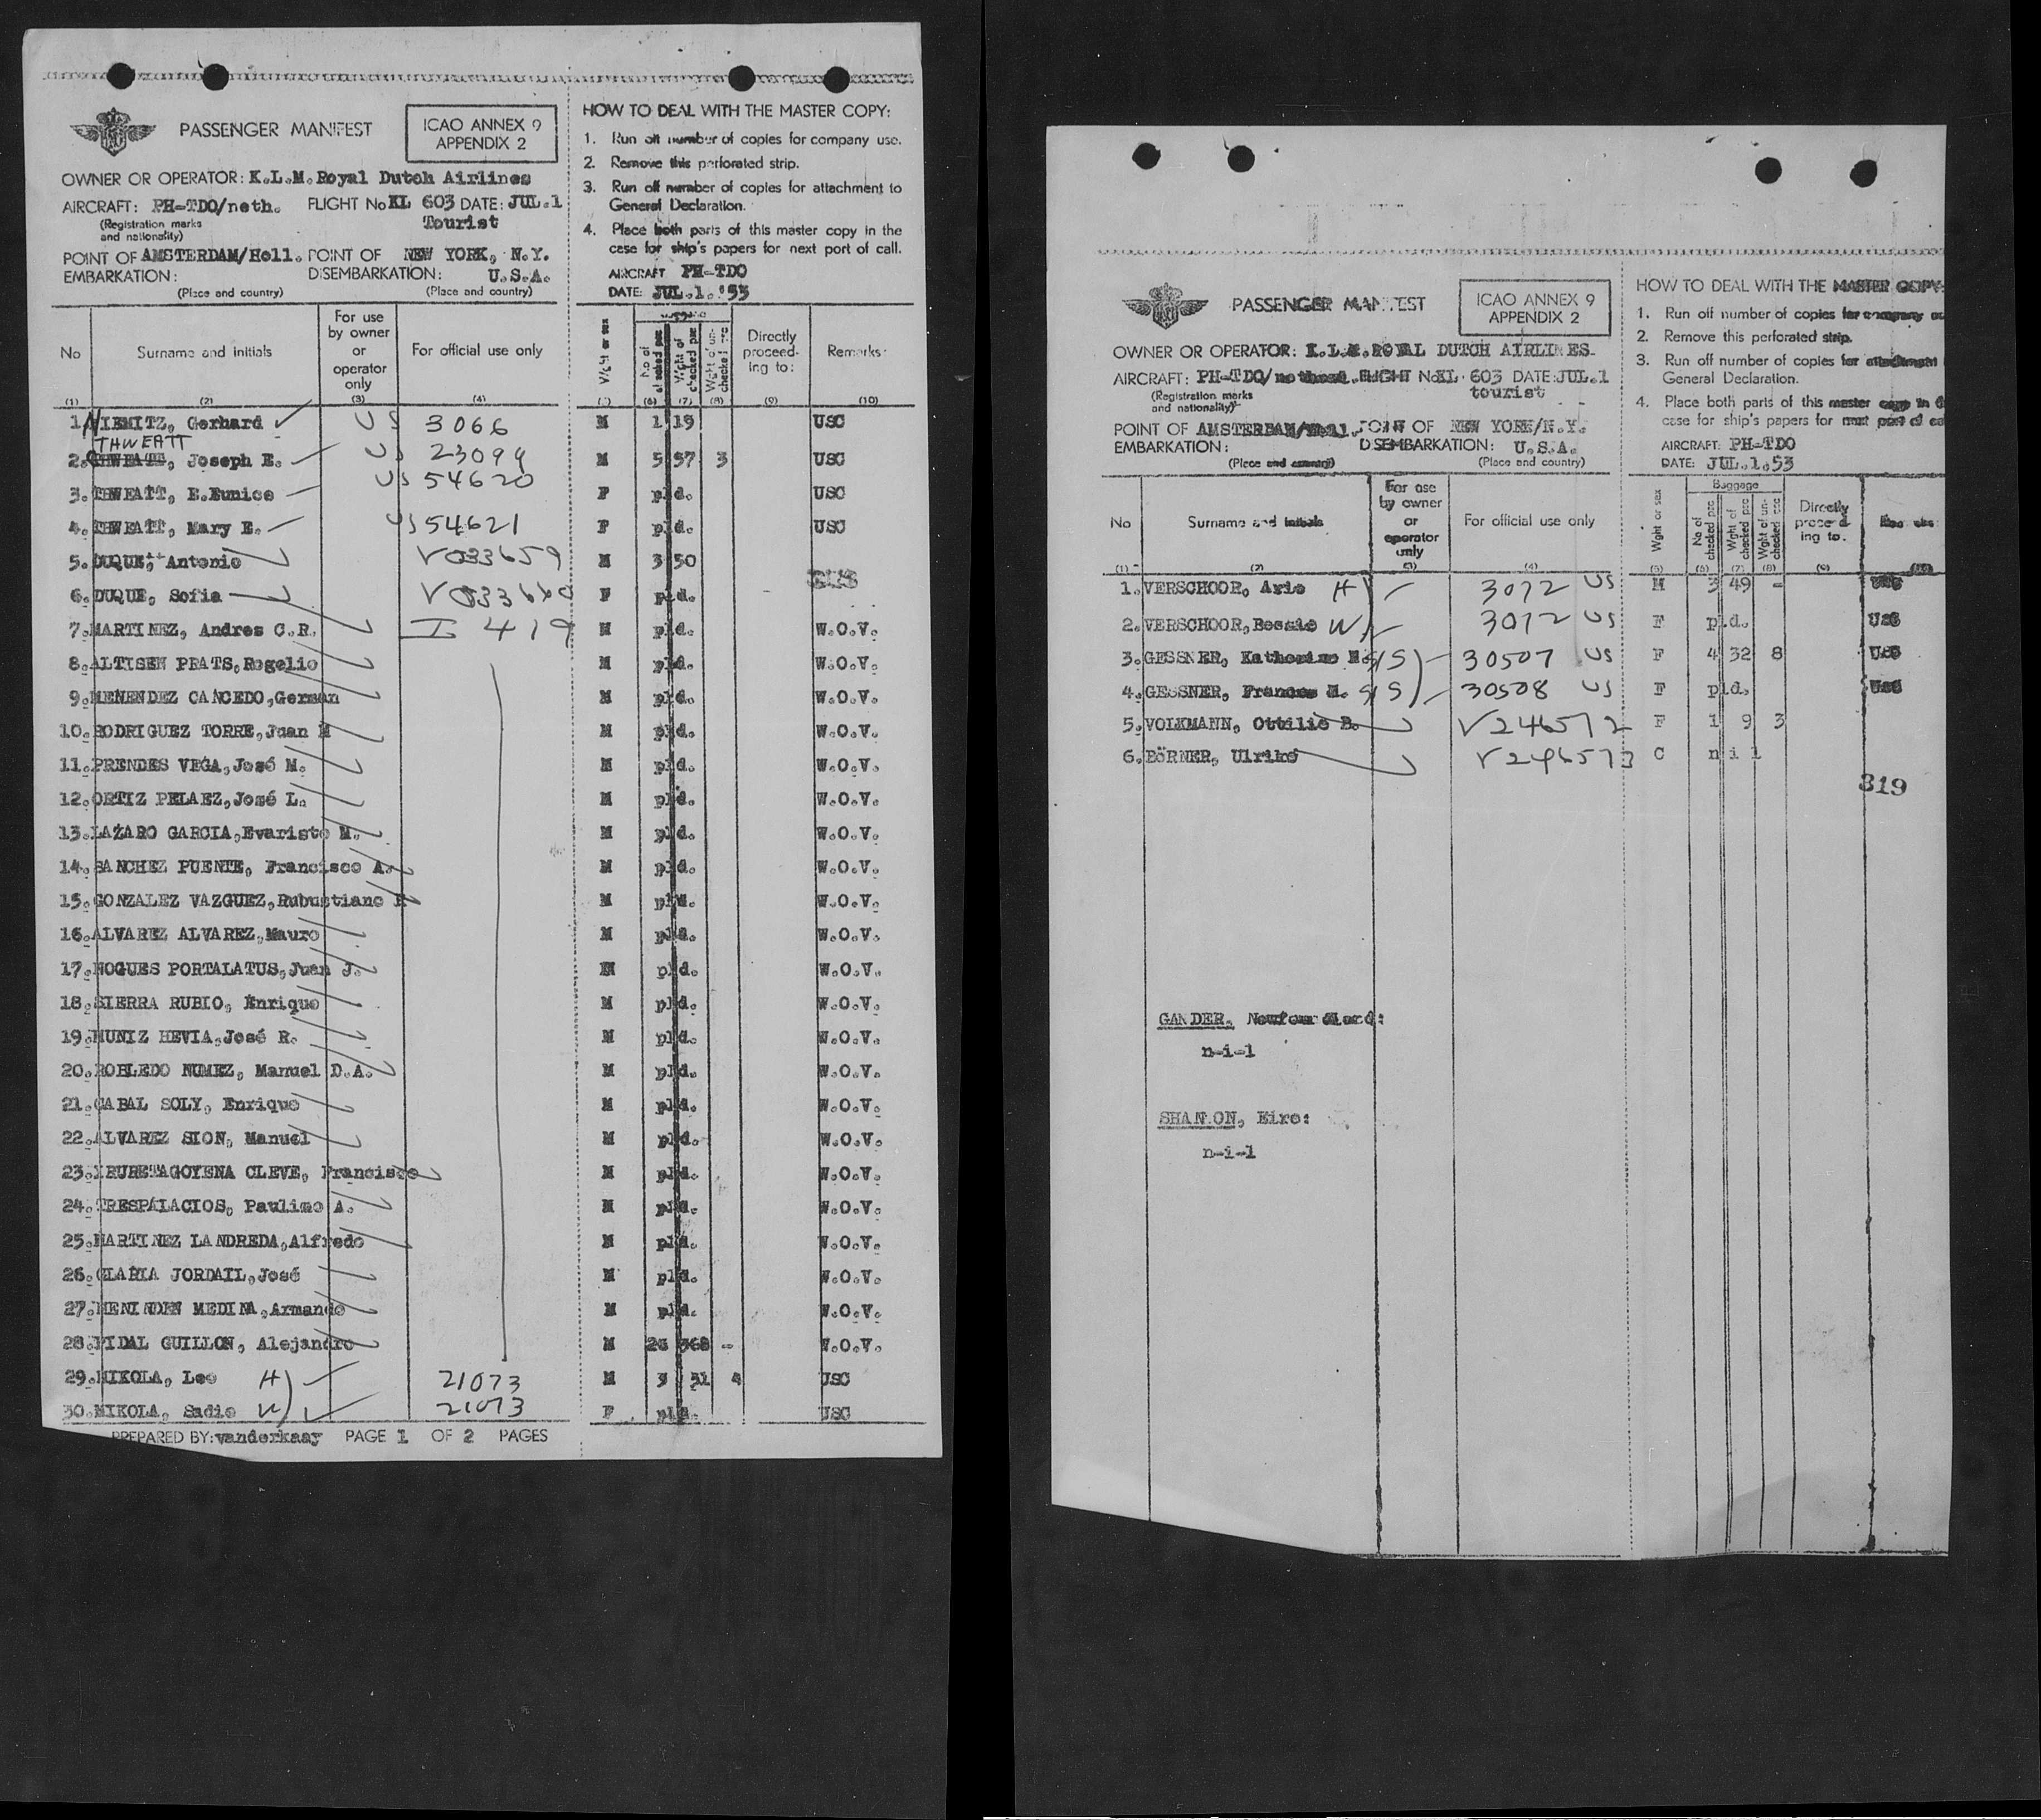 PASSENGER MANIFEST
ICAO ANNEX 9
APPENDIX 2
OWNER OR OPERATOR: K.L.M. Royal Dutch Airlines
AIRCRAFT: PH-TDO/neth. FLIGHT No KL 603 DATE: JUL.1
(Registration marks and nationality) Tourist
POINT OF EMBARKATION: AMSTERDAM/Holl. POINT OF DISEMBARKATION: NEW YORK, N.Y. U.S.A.
(Place and country) (Place and country)
HOW TO DEAL WITH THE MASTER COPY:
1. Run off number of copies for company use.
2. Remove this perforated strip.
3. Run off number of copies for attachment to General Declaration.
4. Place both parts of this master copy in the case for ship's papers for next port of call.
AIRCRAFT PH-TDO
DATE: JUL.1.'53
No Surname and initials For use by owner or operator only For official use only Wght or sex No of checked pcs Wght of checked pcs Wght of un-checked pcs Directly proceed-ing to: Remarks:
(1) (2) (3) (4) (6) (7) (8) (9) (10)
1. NIEMITZ, Gerhard US 3066 M 1 19 USC
THWEATT
2. THWEATT, Joseph E. US 23099 M 5 57 3 USC
3. THWEATT, E.Eunice US 54620 F pld. USC
4. THWEATT, Mary E. US 54621 F pld. USC
5. DUQUE, Antonio V033659 M 3 50
6. DUQUE, Sofia V033660 F pld.
7. MARTINEZ, Andres C.R. I 419 M pld. W.O.V.
8. ALTISEN PRATS, Rogelio M pld. W.O.V.
9. MENENDEZ CANCEDO, German M pld. W.O.V.
10. RODRIGUEZ TORRE, Juan M M pld. W.O.V.
11. PRENDES VEGA, José M. M pld. W.O.V.
12. ORTIZ PELAEZ, José L. M pld. W.O.V.
13. LAZARO GARCIA, Evaristo M. M pld. W.O.V.
14. SANCHEZ PUENTE, Francisco A. M pld. W.O.V.
15. GONZALEZ VAZGUEZ, Rubustiano M pld. W.O.V.
16. ALVAREZ ALVAREZ, Mauro M pld. W.O.V.
17. NOGUES PORTALATUS, Juan J. M pld. W.O.V.
18. SIERRA RUBIO, Enrique M pld. W.O.V.
19. MUNIZ HEVIA, José R. M pld. W.O.V.
20. ROBLEDO NUMEZ, Manuel D.A. M pld. W.O.V.
21. CABAL SOLY, Enrique M pld. W.O.V.
22. ALVAREZ SION, Manuel M pld. W.O.V.
23. IRURETAGOYENA CLEVE, Francisco M pld. W.O.V.
24. TRESPALACIOS, Paulino A. M pld. W.O.V.
25. MARTINEZ LANDREDA, Alfredo M pld. W.O.V.
26. CLARIA JORDAIL, José M pld. W.O.V.
27. MEDINA, Armando M pld. W.O.V.
28. VIDAL GUILLON, Alejandro M 23 368 - W.O.V.
29. MIKOLA, Leo H) 21073 M 3 31 4 USC
30. MIKOLA, Sadie W) 21073 F pld. USC
PREPARED BY: vanderkaay PAGE 1 OF 2 PAGES
PASSENGER MANIFEST
ICAO ANNEX 9
APPENDIX 2
OWNER OR OPERATOR: K.L.M. ROYAL DUTCH AIRLINES
AIRCRAFT: PH-TDO/ FLIGHT No KL 603 DATE: JUL.1
(Registration marks and nationality) tourist
POINT OF EMBARKATION: AMSTERDAM/Holl. POINT OF DISEMBARKATION: NEW YORK/N.Y. U.S.A.
(Place and country) (Place and country)
HOW TO DEAL WITH THE MASTER COPY
1. Run off number of copies for company
2. Remove this perforated strip.
3. Run off number of copies for attachment General Declaration.
4. Place both parts of this master copy in case for ship's papers for next port of
AIRCRAFT: PH-TDO
DATE: JUL.1.53
No Surname and initials For use by owner or operator only For official use only Wght or sex Baggage No of checked pcs Wght of checked pcs Wght of un-checked pcs Directly proceed-ing to:
(1) (2) (3) (4) (5) (6) (7) (8) (9) (10)
1. VERSCHOOR, Arie H) 3072 US M 3 49 - USC
2. VERSCHOOR, Bessie W) 3072 US F pld. USC
3. GESSNER, Katherine S/S) 30507 US F 4 32 8 USC
4. GESSNER, Frances M. S/S) 30508 US F pld. USC
5. VOLKMANN, Ottilie B. V246572 F 1 9 3
6. BÖRNER, Ulrike V246573 C nil
319
GANDER, Newfoundland:
n-i-l
SHANNON, Eire:
n-i-l